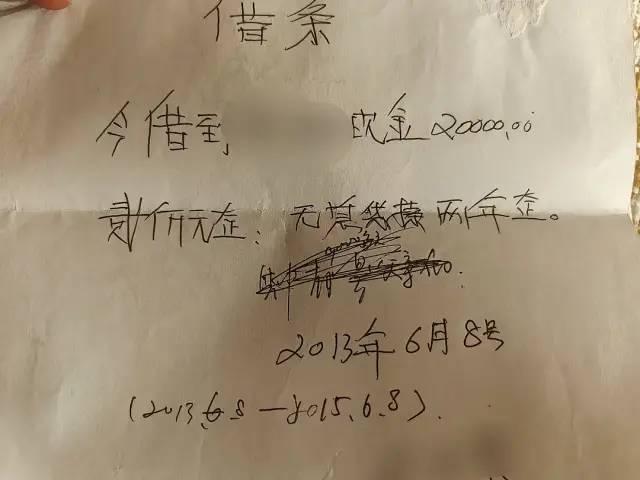 借条
今借到 现金20000.00
贰仟元正: 无息 两年正。
2013年6月8号
(2013.6.8—2015.6.8).